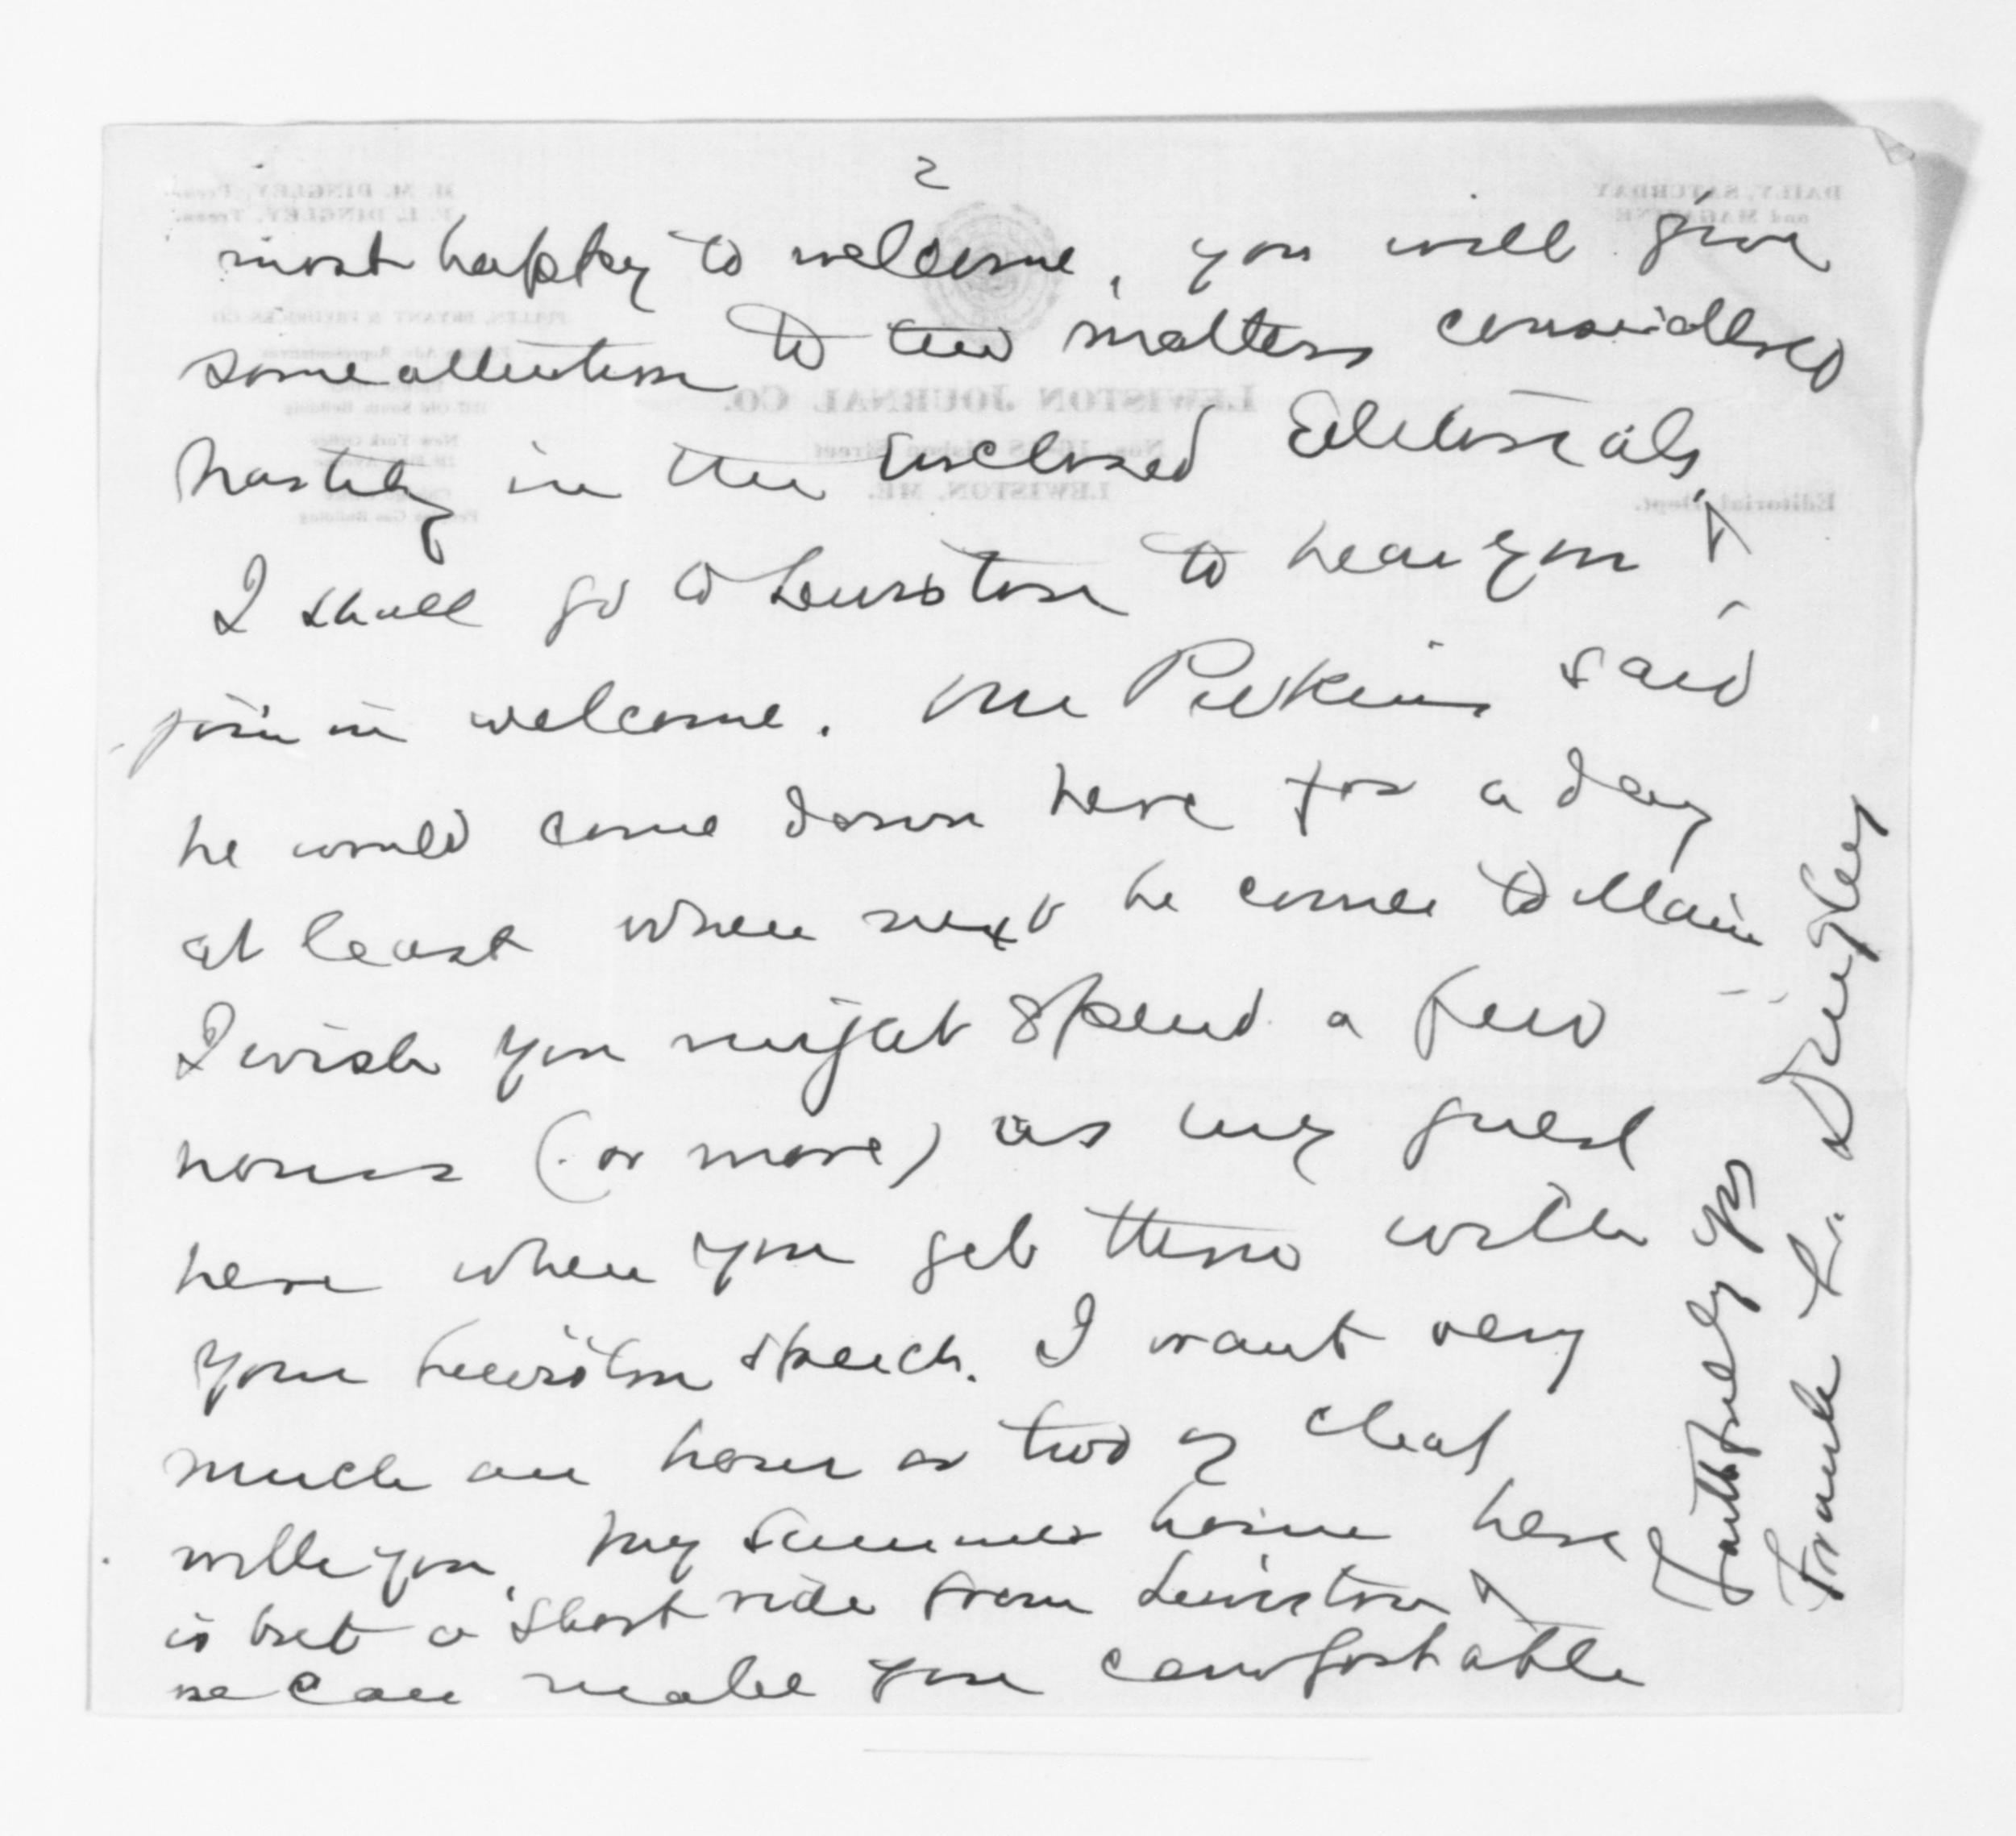 2
most happy to welcome, you will give
some attention to two matters considered
hastily in the Enclosed Editorials.
I shall go to Lewiston to hear you &
join in welcome. Mr Perkins said
he would come down here for a day
at least when next he comes to Maine
I wish you might spend a few
hours (or more) as my guest
here when you get thro with
your Lewiston speech. I want very
much an hour or two of chat
with you. My summer home here
is but a short ride from Lewiston &
we can make you comfortable
Faithfully yrs
Frank L. Dingley
DAILY, SATURDAY
and MAGAZINE
LEWISTON JOURNAL CO.
LEWISTON, ME.
Editorial Dept.
H. M. DINGLEY,
F. L. DINGLEY, Treas.